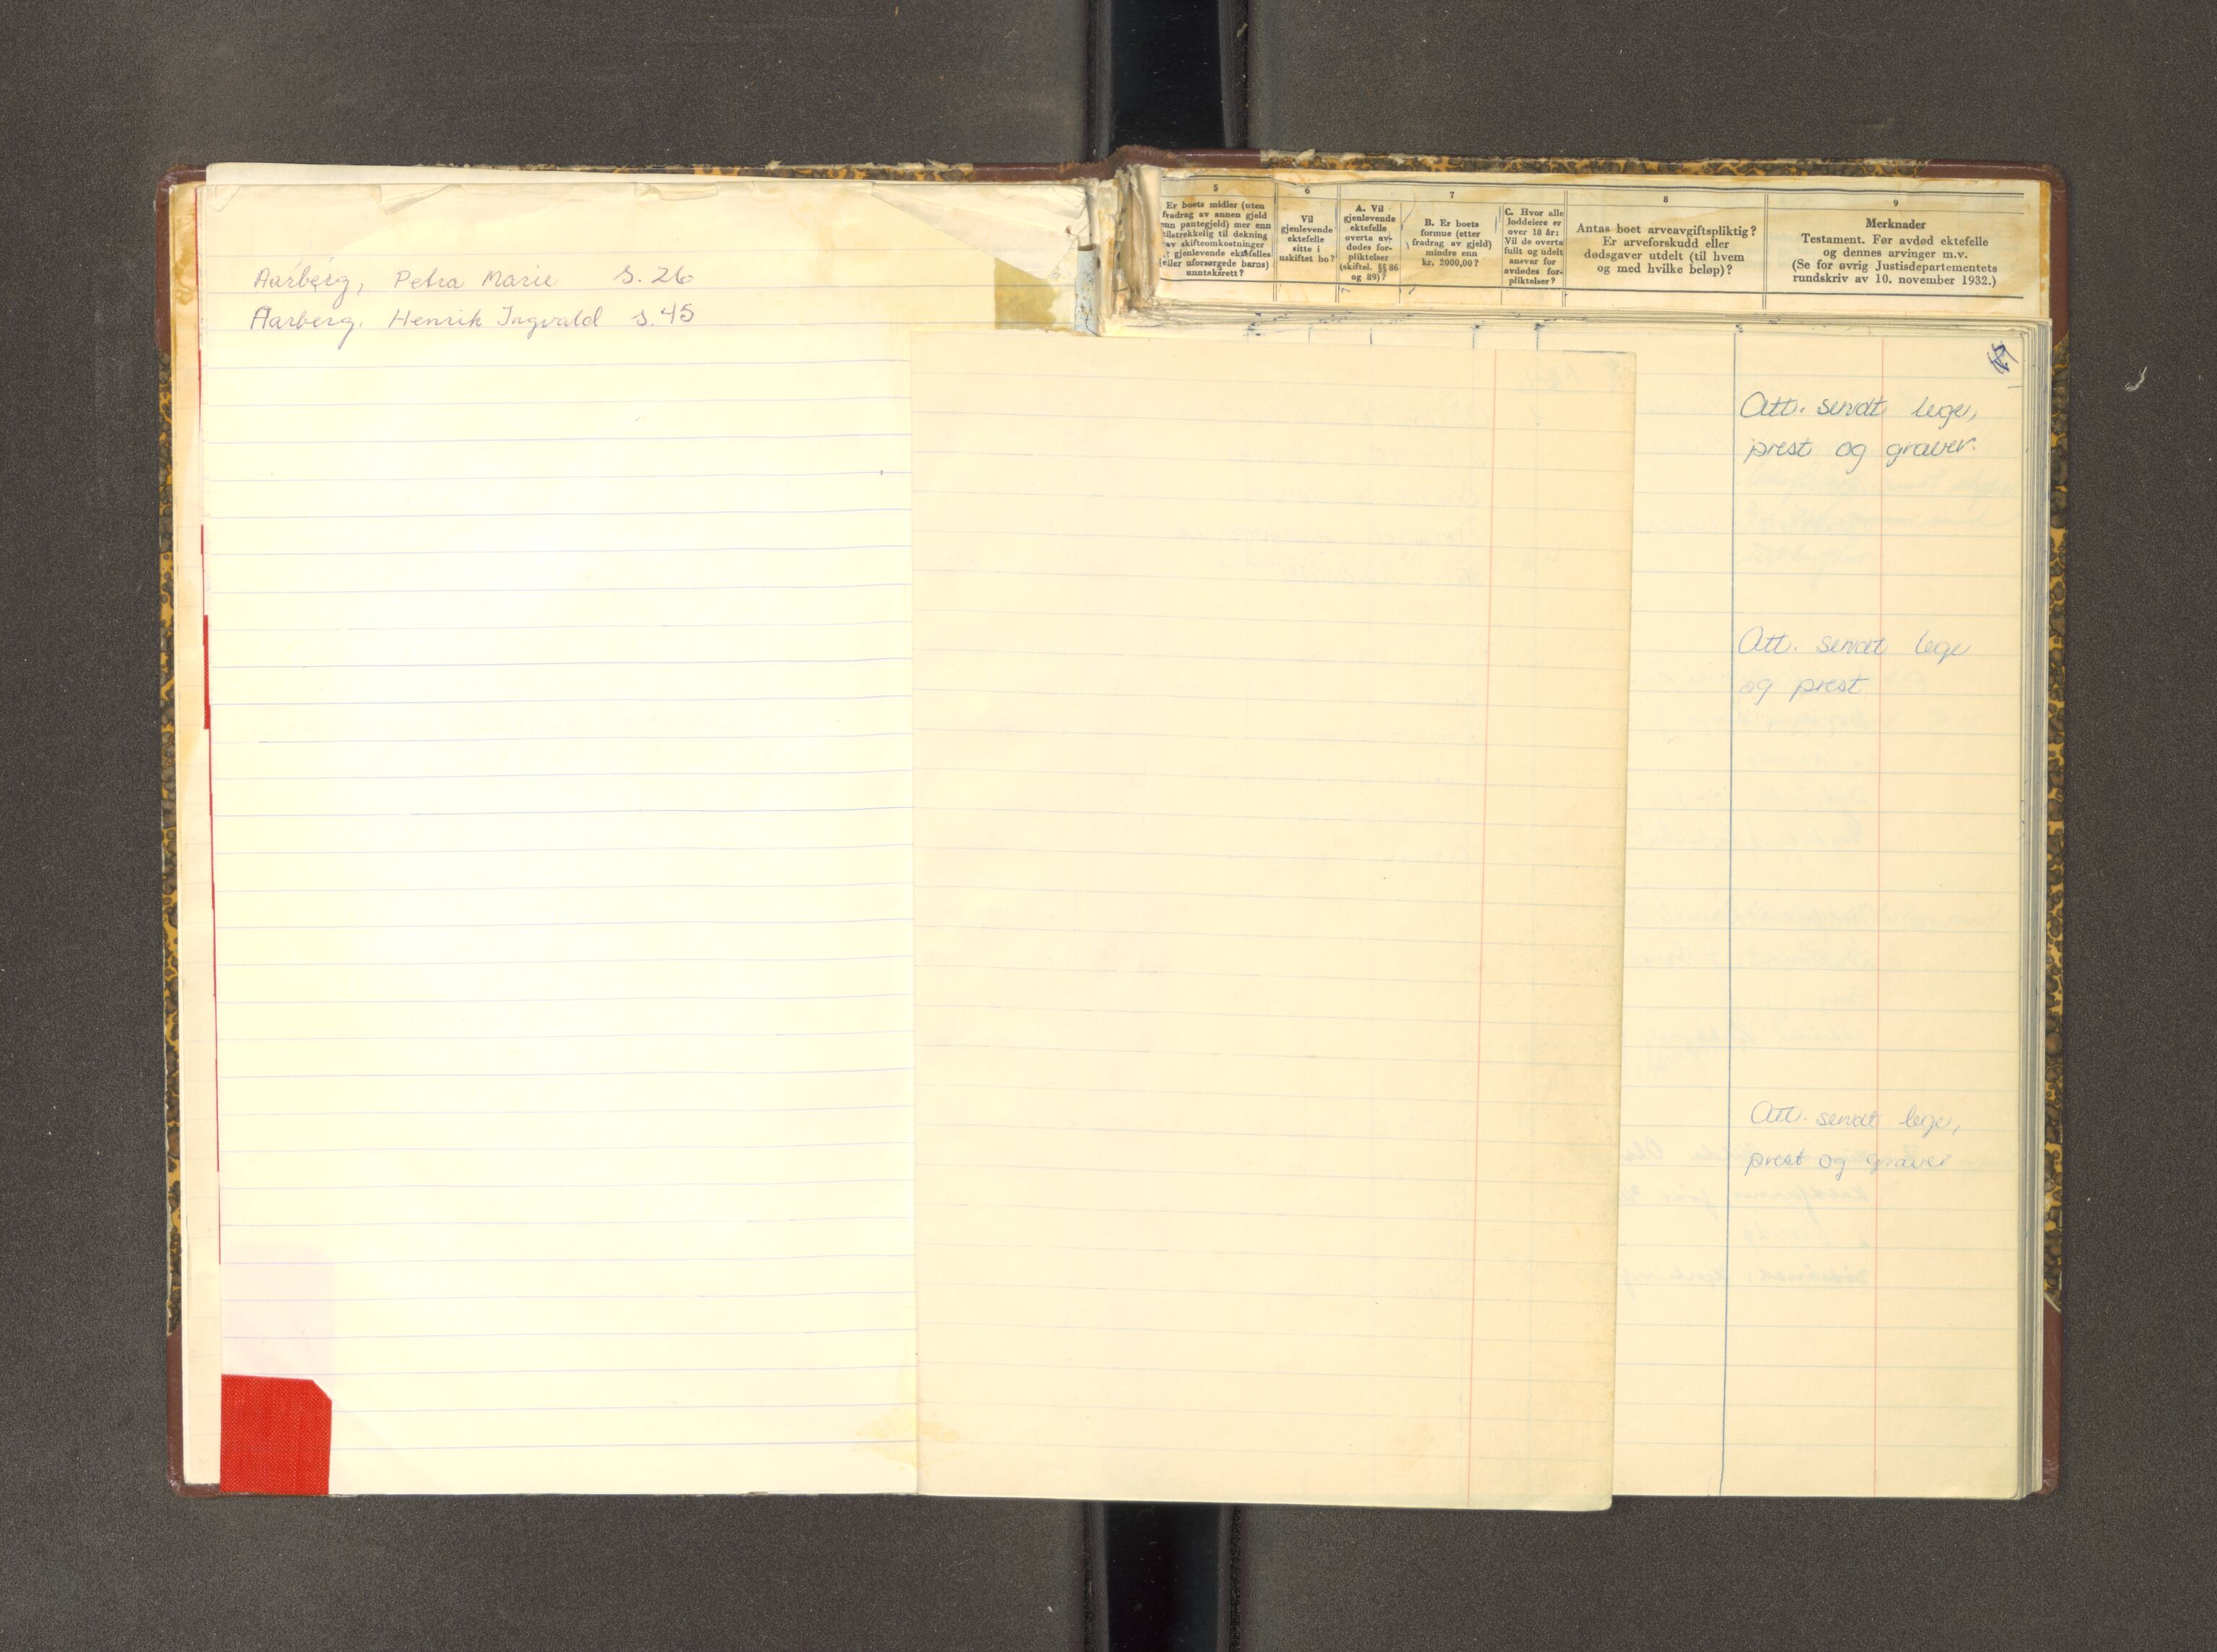 Aarberg, Petra Marie S. 26
Aarberg, Henrik Ingvald S. 45
5
Er boets midler (uten
fradrag av annen gjeld
enn pantegjeld) mer enn
tilstrekkelig til dekning
av skifteomkostninger
gjenlevende ektefelles
(eller uforsørgede barns)
unntaksrett?
6
Vil
gjenlevende
ektefelle
sitte i
uskiftet bo?
7
A. Vil
gjenlevende
ektefelle
overta av-
dødes for-
pliktelser
(skiftel. §§ 86
og 89)?
B. Er boets
formue (etter
fradrag av gjeld)
mindre enn
kr. 2000,00?
C. Hvor alle
loddeiere er
over 18 år:
Vil de overta
fullt og udelt
ansvar for
avdødes for-
pliktelser?
8
Antas boet arveavgiftspliktig?
Er arveforskudd eller
dødsgaver utdelt (til hvem
og med hvilke beløp)?
9
Merknader
Testament. Før avdød ektefelle
og dennes arvinger m.v.
(Se for øvrig Justisdepartementets
rundskriv av 10. november 1932.)
Att. sendt lege,
prest og graver.
Att. sendt lege
og prest
Att. sendt lege,
prest og graver